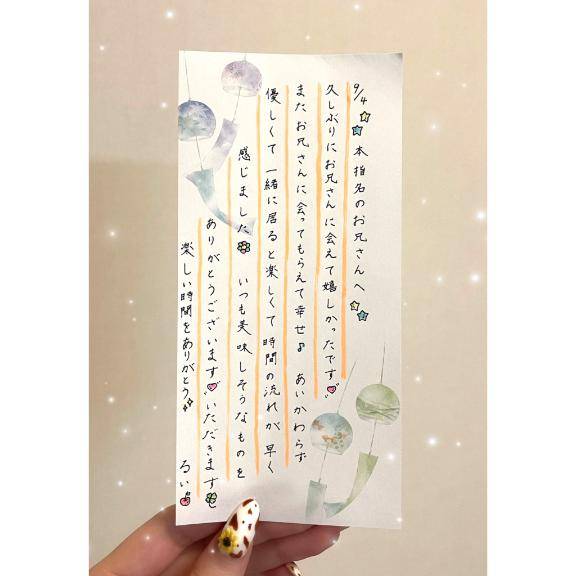 9/4 本指名のお兄さんへ
久しぶりにお兄さんに会えて嬉しかったです
またお兄さんに会ってもらえて幸せ♪ あいかわらず
優しくて一緒に居ると楽しくて時間の流れが早く
感じました いつも美味しそうなものを
ありがとうございます いただきます
楽しい時間をありがとう るい